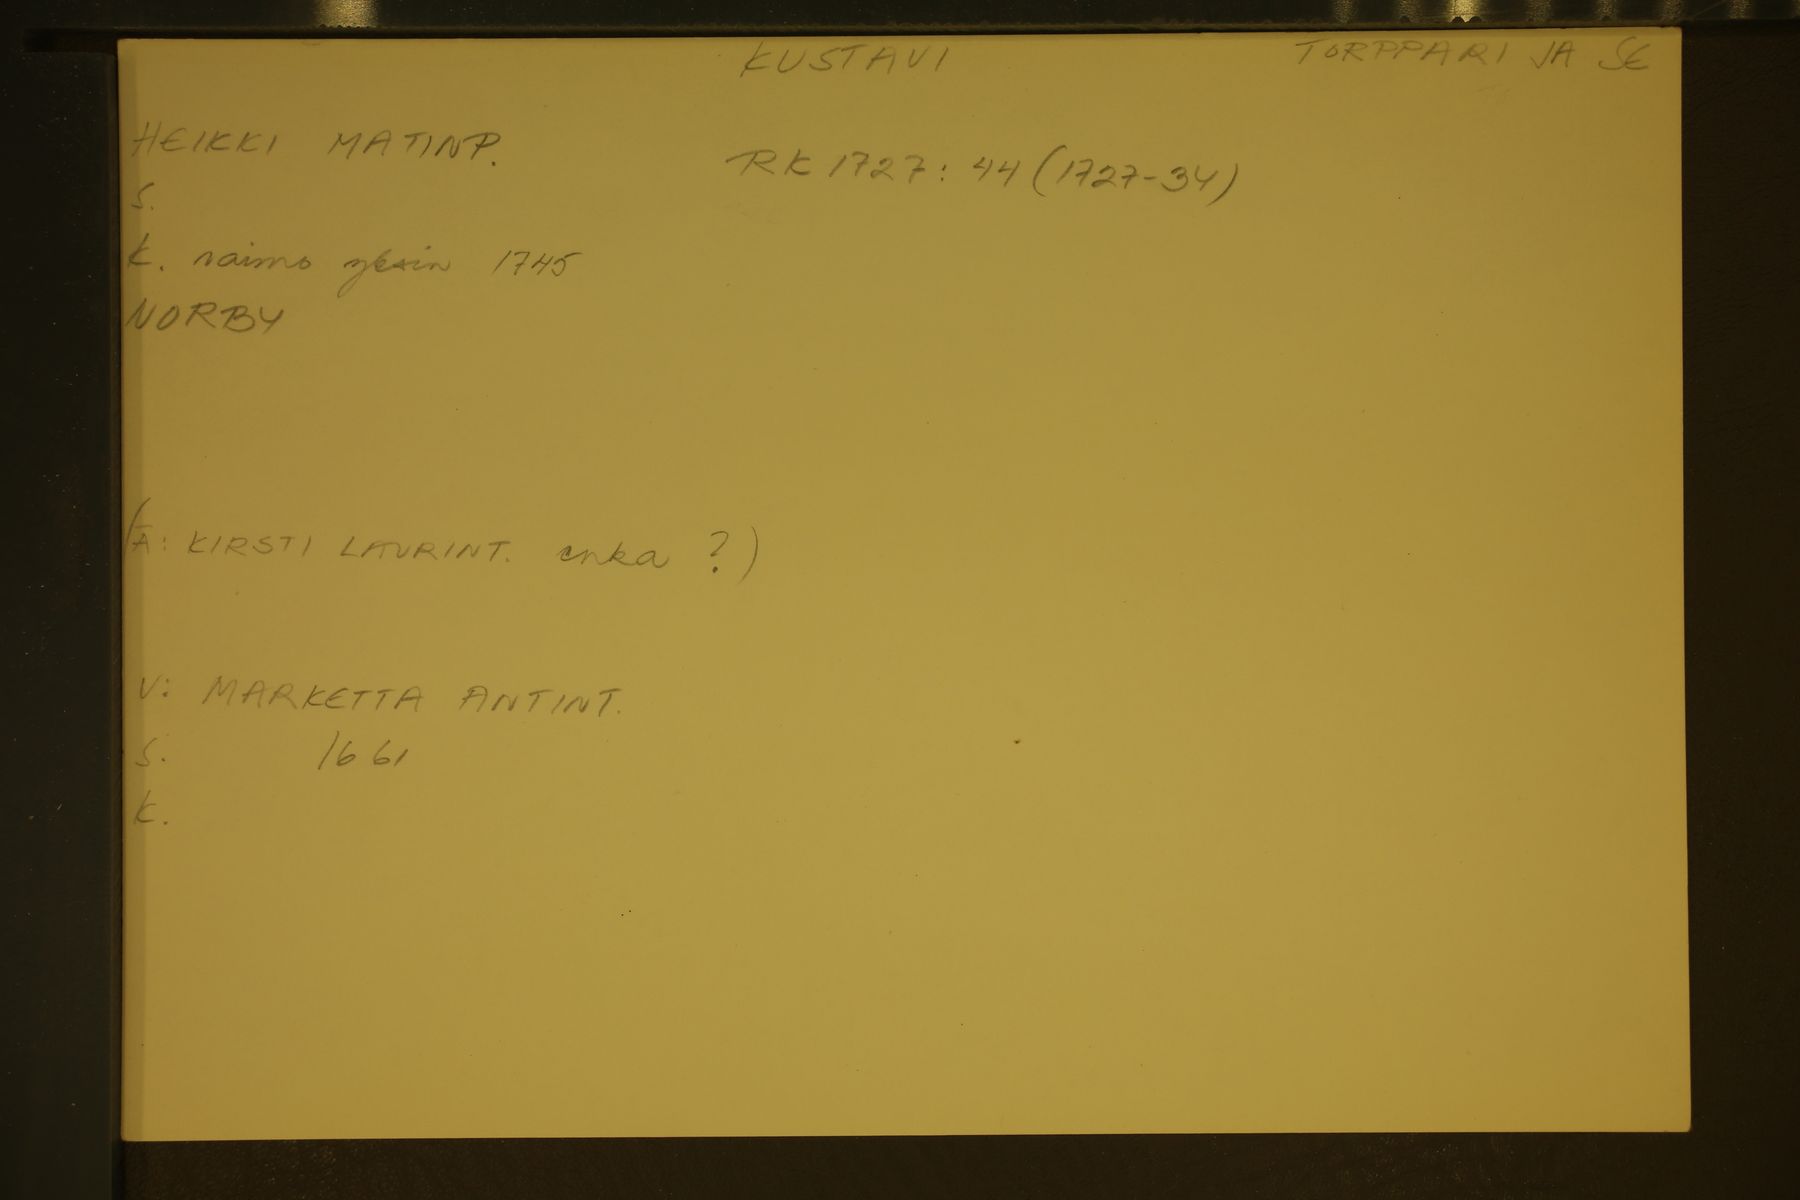 KUSTAVI
TORPPARI JA SE
HEIKKI MATINP.
RK 1727: 44 (1727-34)
S.
K. vaimo yksin 1745
NORBY
(Ä: KIRSTI LAURINT. enka ?)
V: MARKETTA ANTINT.
S. 1661
K.